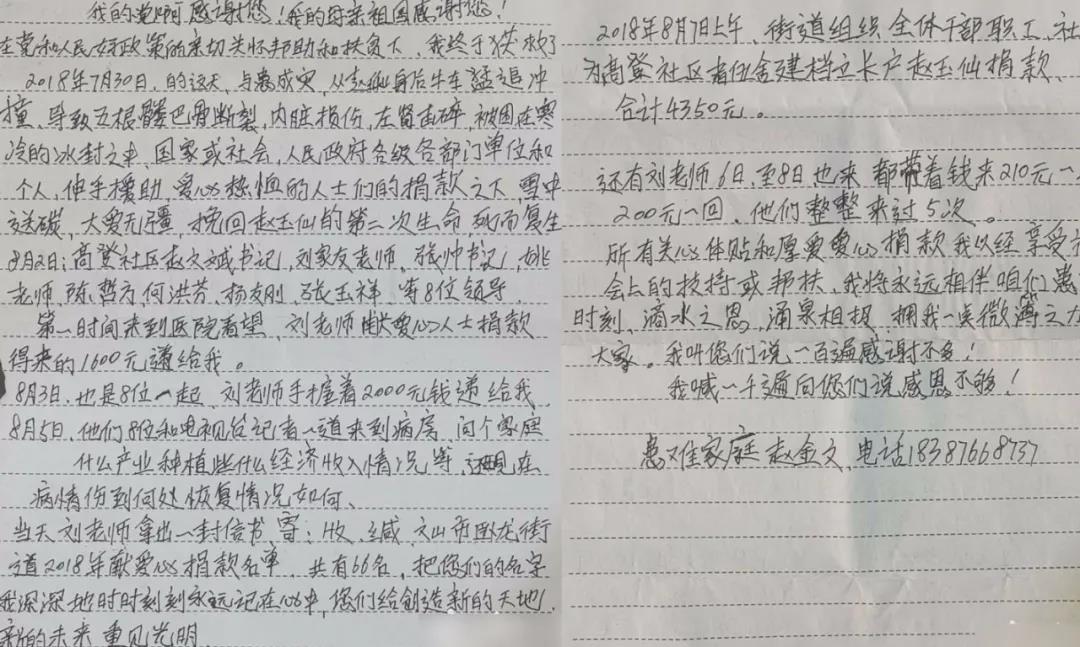 我的党啊感谢您!我的母亲祖国感谢您!
在党和人民好政策的亲切关怀帮助和扶贫下、我终于获救了
2018年7月30日、的这天、与患成灾、从赵玉仙身后牛车猛追冲
撞、导致五根髅巴骨断裂,内脏损伤,左肾击碎,被困在寒
冷的冰封之中、国家或社会,人民政府各级各部门单位和
个人,伸手援助、爱心热恤的人士们的捐款之下、雪中
送碳,大爱无疆,挽回赵玉仙的第二次生命 死而复生
8月2日;高登社区赵文斌书记,刘家友老师、张帅书记,姚
老师,陈哲方何洪芳、杨友刚,张玉祥、等8位领导、
第一时间来到医院看望、刘老师献爱心人士捐款
得来的1600元递给我。
8月3日、也是8位一起、刘老师手握着2000元钱递给我、
8月5日、他们8位和电视台记者一道来到病房、问个家庭
什么产业种植些什么经济收入情况等、还现在
病情伤到何处恢复情况如何、
当天刘老师拿出一封信书、写:收、缄、文山市卧龙街
道2018年献爱心捐款名单、共有66名,把您们的名字
我深深地时时刻刻永远记在心中,您们给创造新的天地,
新的未来 重见光明
2018年8月7日上午、街道组织全体干部职工、社
为高登社区者伍舍建档立卡户赵玉仙捐款、
合计4350元。
还有刘老师6日、至8日也来 都带着钱来210元一
200元一回、他们整整来过5次。
所有关心体贴和厚爱爱心捐款我以经享受
会上的扶持或帮扶、我将永远相伴咱们患
时刻、滴水之恩、涌泉相报、拥我一点微薄之力
大家。我叫您们说一百遍感谢不多!
我喊一千遍向您们说感恩不够!
患难家庭 赵金文、电话18387668737